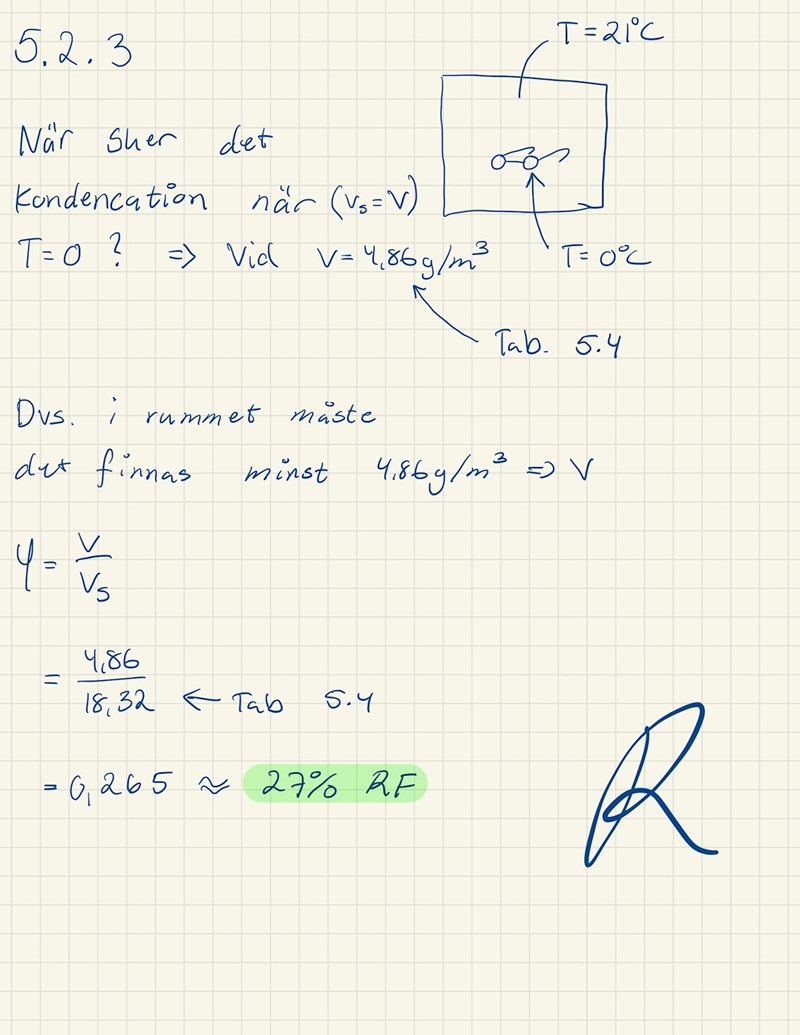 5.2.3
T=21°C
När sker det
Kondencation när (vs=v)
T=0 ? => Vid v=4,86g/m³
T=0°C
Tab. 5.4
Dvs. i rummet måste
det finnas minst 4,86g/m³ => v
φ= v/vs
= 4,86/18,32 ← Tab 5.4
= 0,265 ≈ 27% RF
R